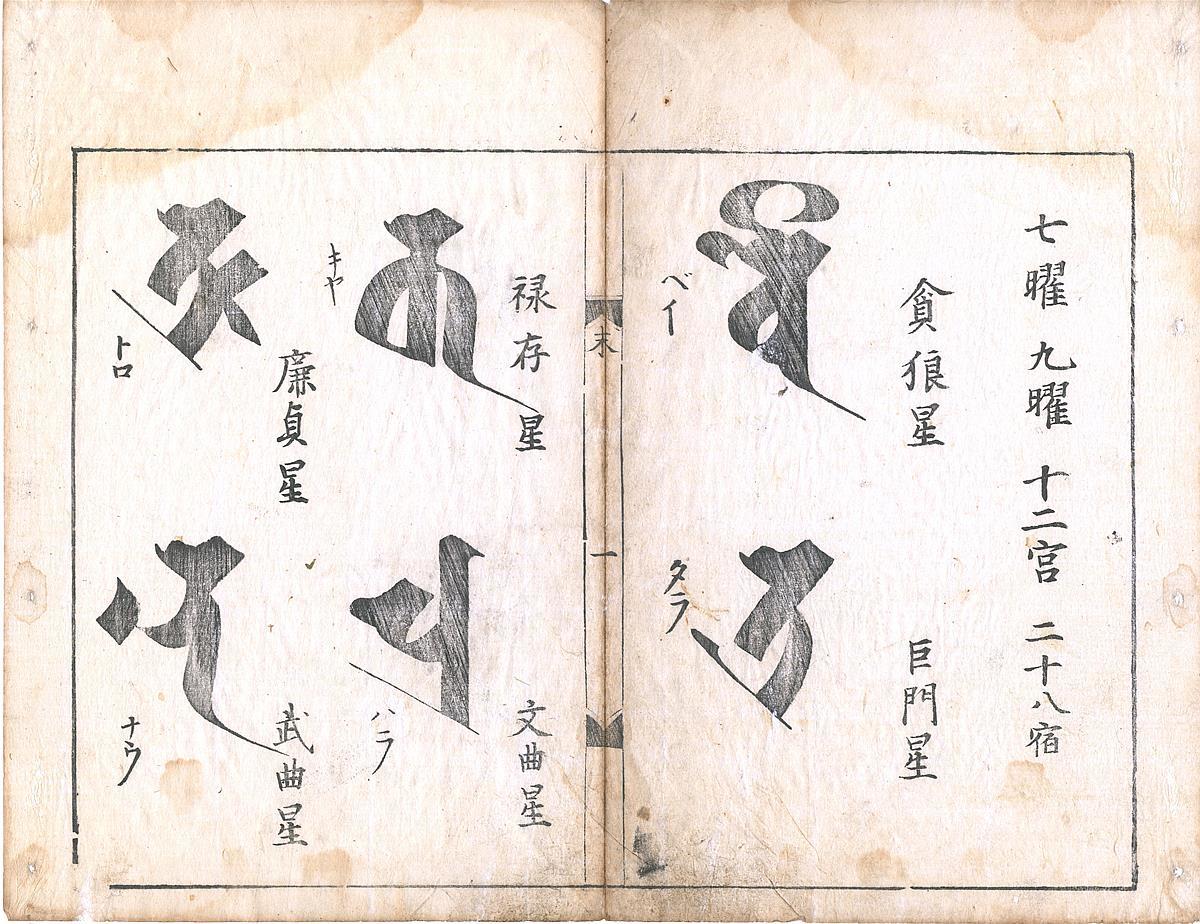 七曜 九曜 十二宮 二十八宿
貪狼星
ベイ
巨門星
タラ
末
一
禄存星
キヤ
文曲星
ハラ
廉貞星
トロ
武曲星
ナウ